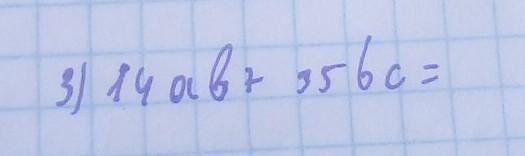 3) 14ab + 35bc =